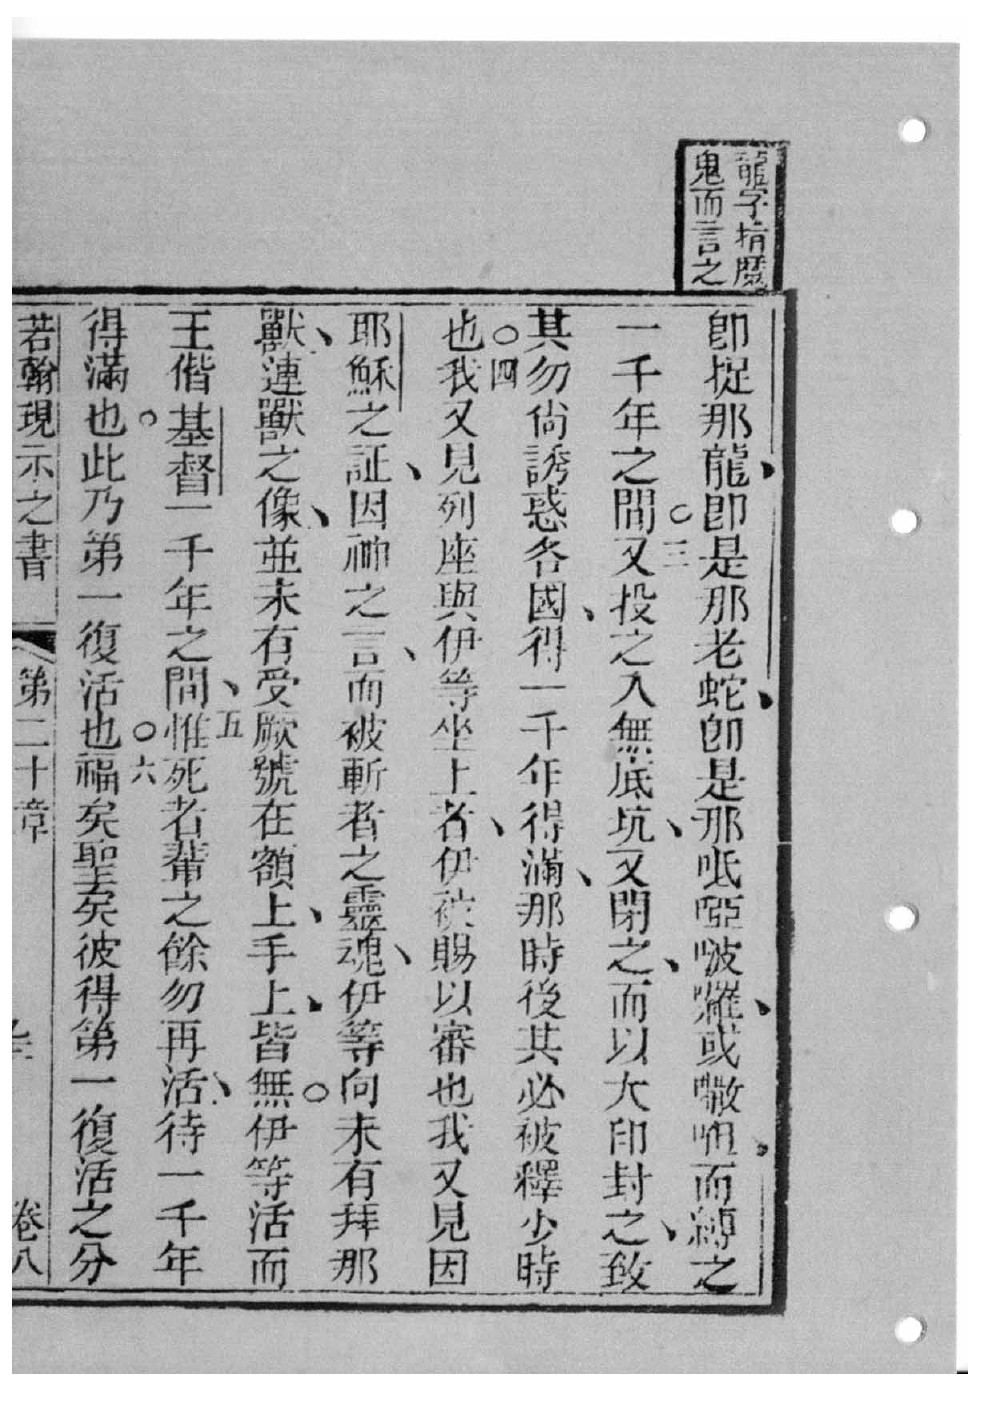 龍字指魔
鬼而言之
即捉那龍即是那老蛇即是那呧啞𠾐囉或㘔呾而縛之
一千年之間○三又投之入無底坑又閉之而以大印封之致
其勿尚誘惑各國得一千年得滿那時後其必被釋少時
也○四我又見列座與伊等坐上者伊被賜以審也我又見因
耶穌之証因神之言而被斬者之靈魂伊等向未有拜那
獸連獸之像並未有受厥號在額上手上皆無○伊等活而
王偕基督一千年之間○五惟死者輩之餘勿再活待一千年
得滿也○此乃第一復活也○六福矣聖矣彼得第一復活之分
若翰現示之書 第二十章 卷八